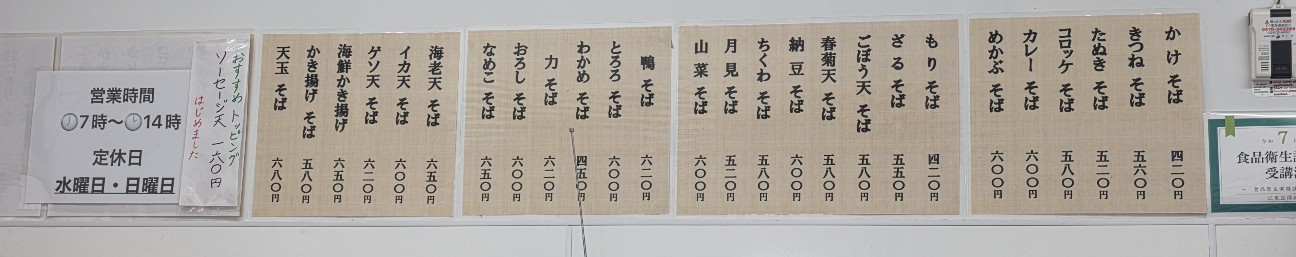 かけ そば 四二〇円
きつね そば 五六〇円
たぬき そば 五二〇円
コロッケ そば 五八〇円
カレー そば 六〇〇円
めかぶ そば 六〇〇円
もり そば 四二〇円
ざる そば 五五〇円
ごぼう天 そば 五八〇円
春菊天 そば 五五〇円
納豆 そば 六〇〇円
ちくわ そば 五八〇円
月見 そば 五二〇円
山菜 そば 六〇〇円
鴨 そば 六二〇円
とろろ そば 六〇〇円
わかめ そば 四五〇円
力 そば 六二〇円
おろし そば 五五〇円
なめこ そば 六五〇円
海老天 そば 六五〇円
イカ天 そば 六二〇円
ゲソ天 そば 六二〇円
海鮮かき揚げ 六五〇円
かき揚げ そば 五八〇円
天玉 そば 六八〇円
おすすめ トッピング
ソーセージ天 一六〇円
はじめました
営業時間
7時〜14時
定休日
水曜日・日曜日
7
食品衛生
受講